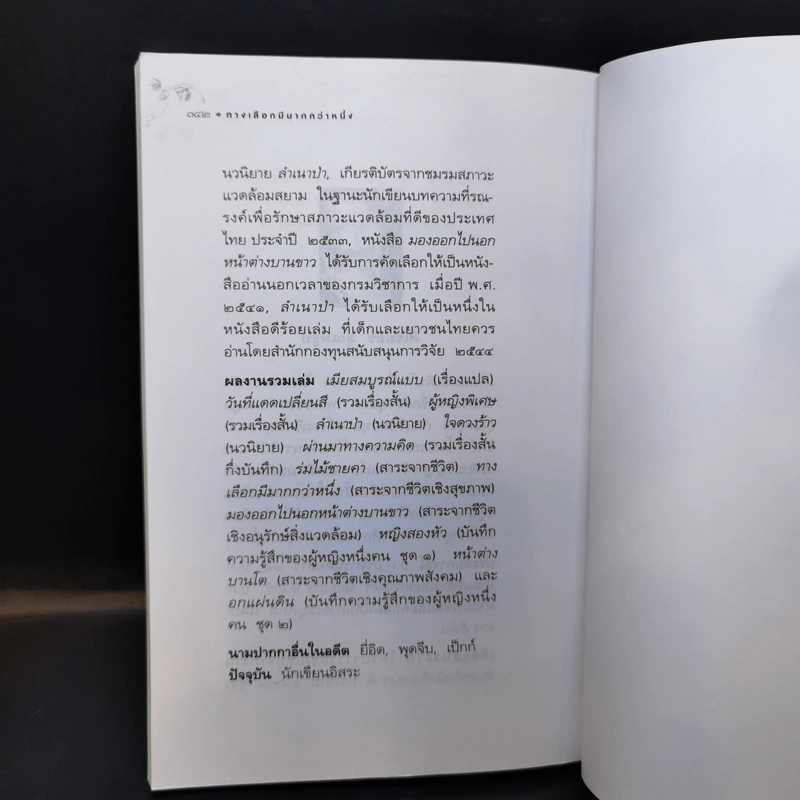 ๑๔๒ • ทางเลือกมีมากกว่าหนึ่ง
นวนิยาย ลำเนาป่า, เกียรติบัตรจากชมรมสภาวะ
แวดล้อมสยาม ในฐานะนักเขียนบทความที่รณ-
รงค์เพื่อรักษาสภาวะแวดล้อมที่ดีของประเทศ
ไทย ประจำปี ๒๕๓๓, หนังสือ มองออกไปนอก
หน้าต่างบานขาว ได้รับการคัดเลือกให้เป็นหนัง-
สืออ่านนอกเวลาของกรมวิชาการ เมื่อปี พ.ศ.
๒๕๔๑, ลำเนาป่า ได้รับเลือกให้เป็นหนึ่งใน
หนังสือดีร้อยเล่ม ที่เด็กและเยาวชนไทยควร
อ่านโดยสำนักกองทุนสนับสนุนการวิจัย ๒๕๔๔
ผลงานรวมเล่ม เมียสมบูรณ์แบบ (เรื่องแปล)
วันที่แดดเปลี่ยนสี (รวมเรื่องสั้น) ผู้หญิงพิเศษ
(รวมเรื่องสั้น) ลำเนาป่า (นวนิยาย) ใจดวงร้าว
(นวนิยาย) ผ่านมาทางความคิด (รวมเรื่องสั้น
กึ่งบันทึก) ร่มไม้ชายคา (สาระจากชีวิต) ทาง
เลือกมีมากกว่าหนึ่ง (สาระจากชีวิตเชิงสุขภาพ)
มองออกไปนอกหน้าต่างบานขาว (สาระจากชีวิต
เชิงอนุรักษ์สิ่งแวดล้อม) หญิงสองหัว (บันทึก
ความรู้สึกของผู้หญิงหนึ่งคน ชุด ๑) หน้าต่าง
บานโต (สาระจากชีวิตเชิงคุณภาพสังคม) และ
อกแผ่นดิน (บันทึกความรู้สึกของผู้หญิงหนึ่ง
คน ชุด ๒)
นามปากกาอื่นในอดีต ยี่อิด, พุดจีบ, เป็กก์
ปัจจุบัน นักเขียนอิสระ